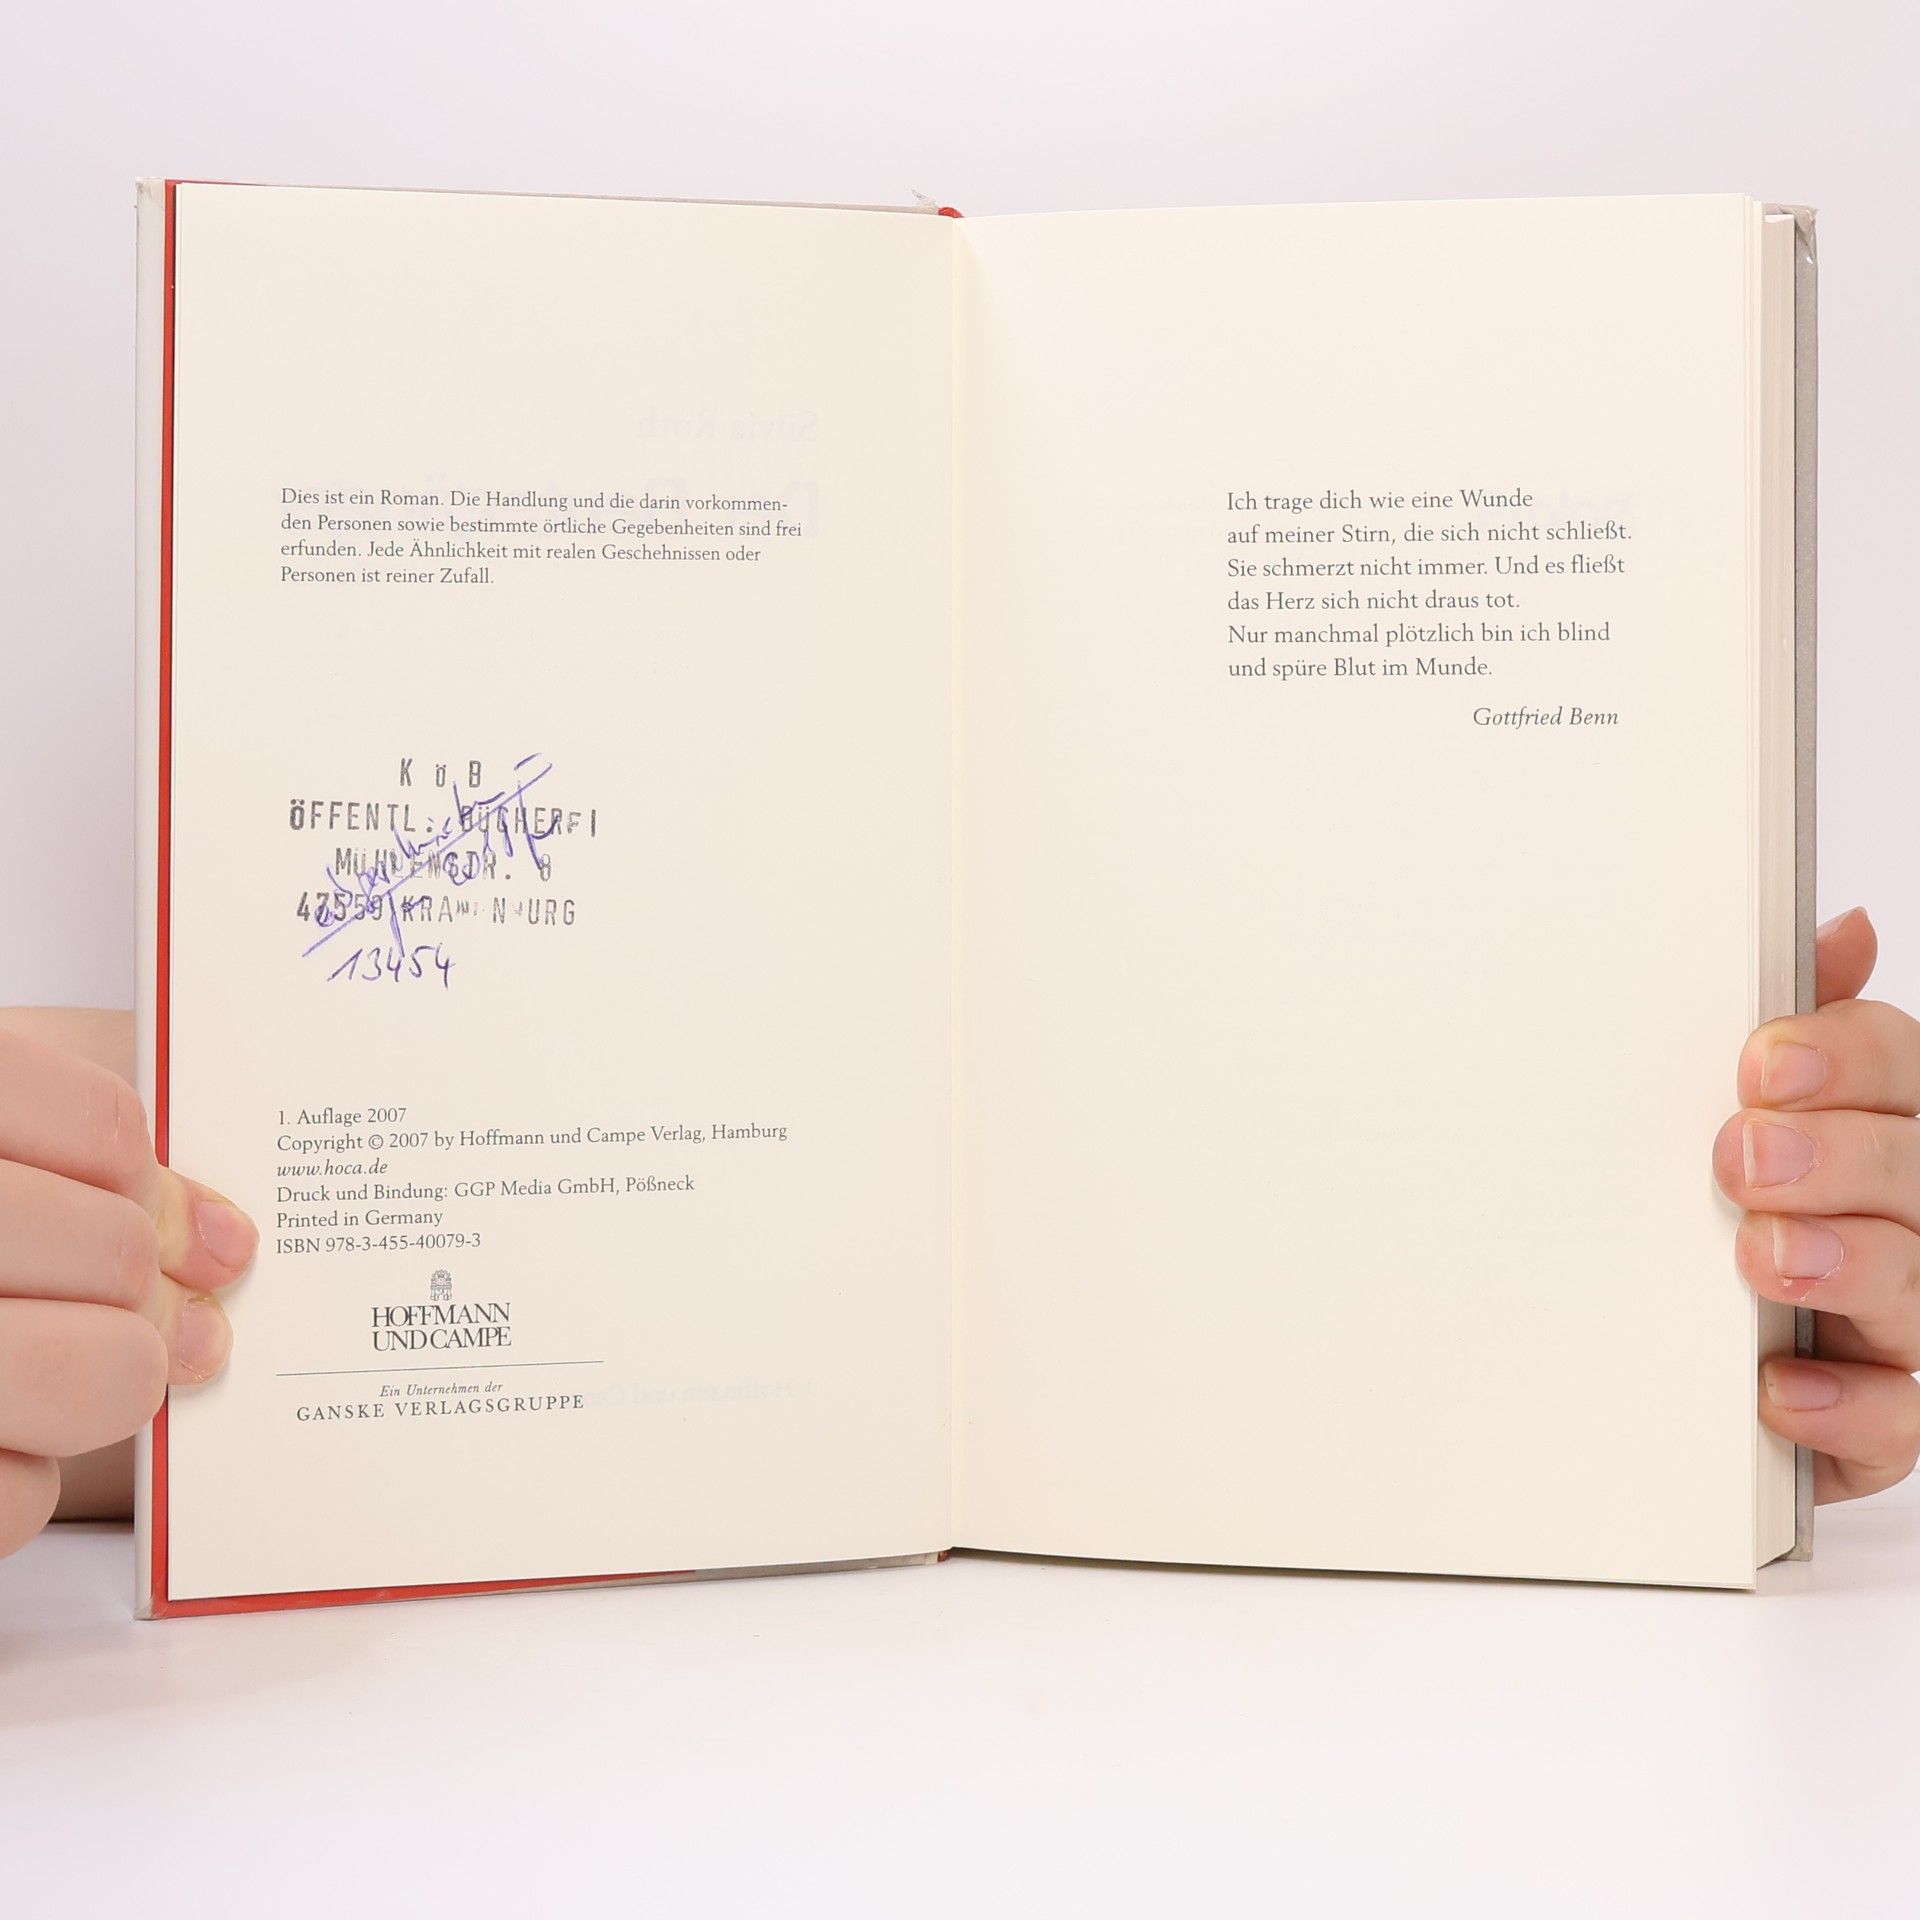 Dies ist ein Roman. Die Handlung und die darin vorkommen-
den Personen sowie bestimmte örtliche Gegebenheiten sind frei
erfunden. Jede Ähnlichkeit mit realen Geschehnissen oder
Personen ist reiner Zufall.
KöB
ÖFFENTL. BÜCHEREI
MÜHLENSTR. 8
47559 KRANENBURG
13454
1. Auflage 2007
Copyright © 2007 by Hoffmann und Campe Verlag, Hamburg
www.hoca.de
Druck und Bindung: GGP Media GmbH, Pößneck
Printed in Germany
ISBN 978-3-455-40079-3
HOFFMANN
UND CAMPE
Ein Unternehmen der
GANSKE VERLAGSGRUPPE
Ich trage dich wie eine Wunde
auf meiner Stirn, die sich nicht schließt.
Sie schmerzt nicht immer. Und es fließt
das Herz sich nicht draus tot.
Nur manchmal plötzlich bin ich blind
und spüre Blut im Munde.
Gottfried Benn